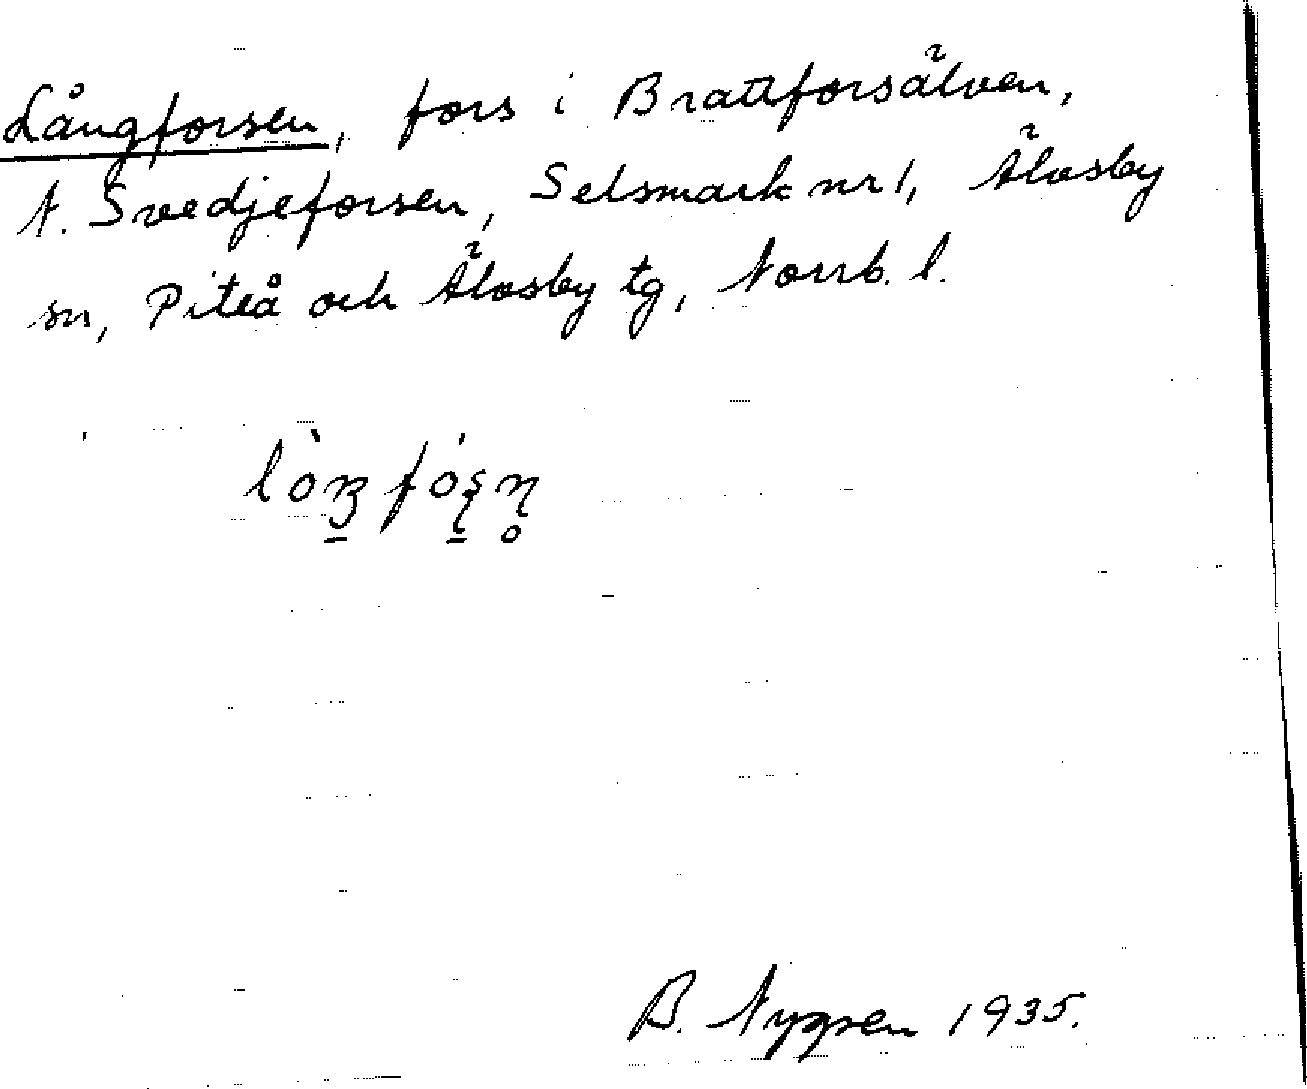 Långforsen, fors i Brattforsälven,
N. Svedjeforsen, Selsmark nr 1, Älvsby
sn, Piteå och Älvsby tg, Norrb. l.
B. Nygren 1935.